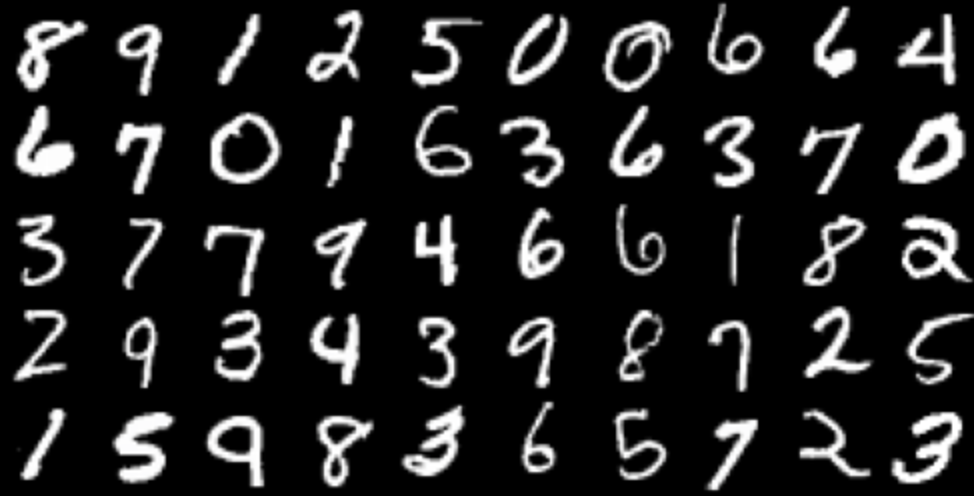 8 9 1 2 5 0 0 6 6 4
6 7 0 1 6 3 6 3 7 0
3 7 7 9 4 6 6 1 8 2
2 9 3 4 3 9 8 7 2 5
1 5 9 8 3 6 5 7 2 3